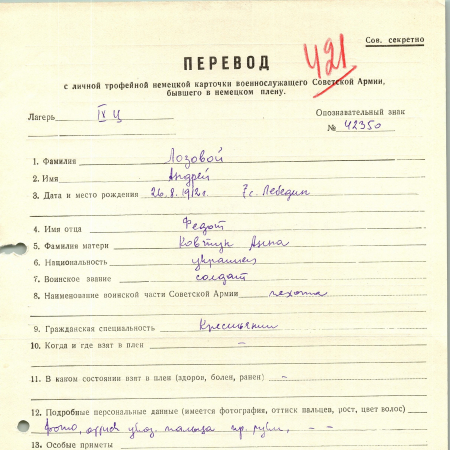 Сов. секретно
421
ПЕРЕВОД
с личной трофейной немецкой карточки военнослужащего Советской Армии,
бывшего в немецком плену.
Лагерь IX Ц
Опознавательный знак
№ 42350
1. Фамилия Лозовой
2. Имя Андрей
3. Дата и место рождения 26.8.1912г. с. Лебедин
4. Имя отца Федот
5. Фамилия матери Ковтун Анна
6. Национальность украинец
7. Воинское звание солдат
8. Наименование воинской части Советской Армии пехота
9. Гражданская специальность Крестьянин
10. Когда и где взят в плен –
11. В каком состоянии взят в плен (здоров, болен, ранен) –
12. Подробные персональные данные (имеется фотография, оттиск пальцев, рост, цвет волос)
фото, указ. пальца пр. руки, – –
13. Особые приметы